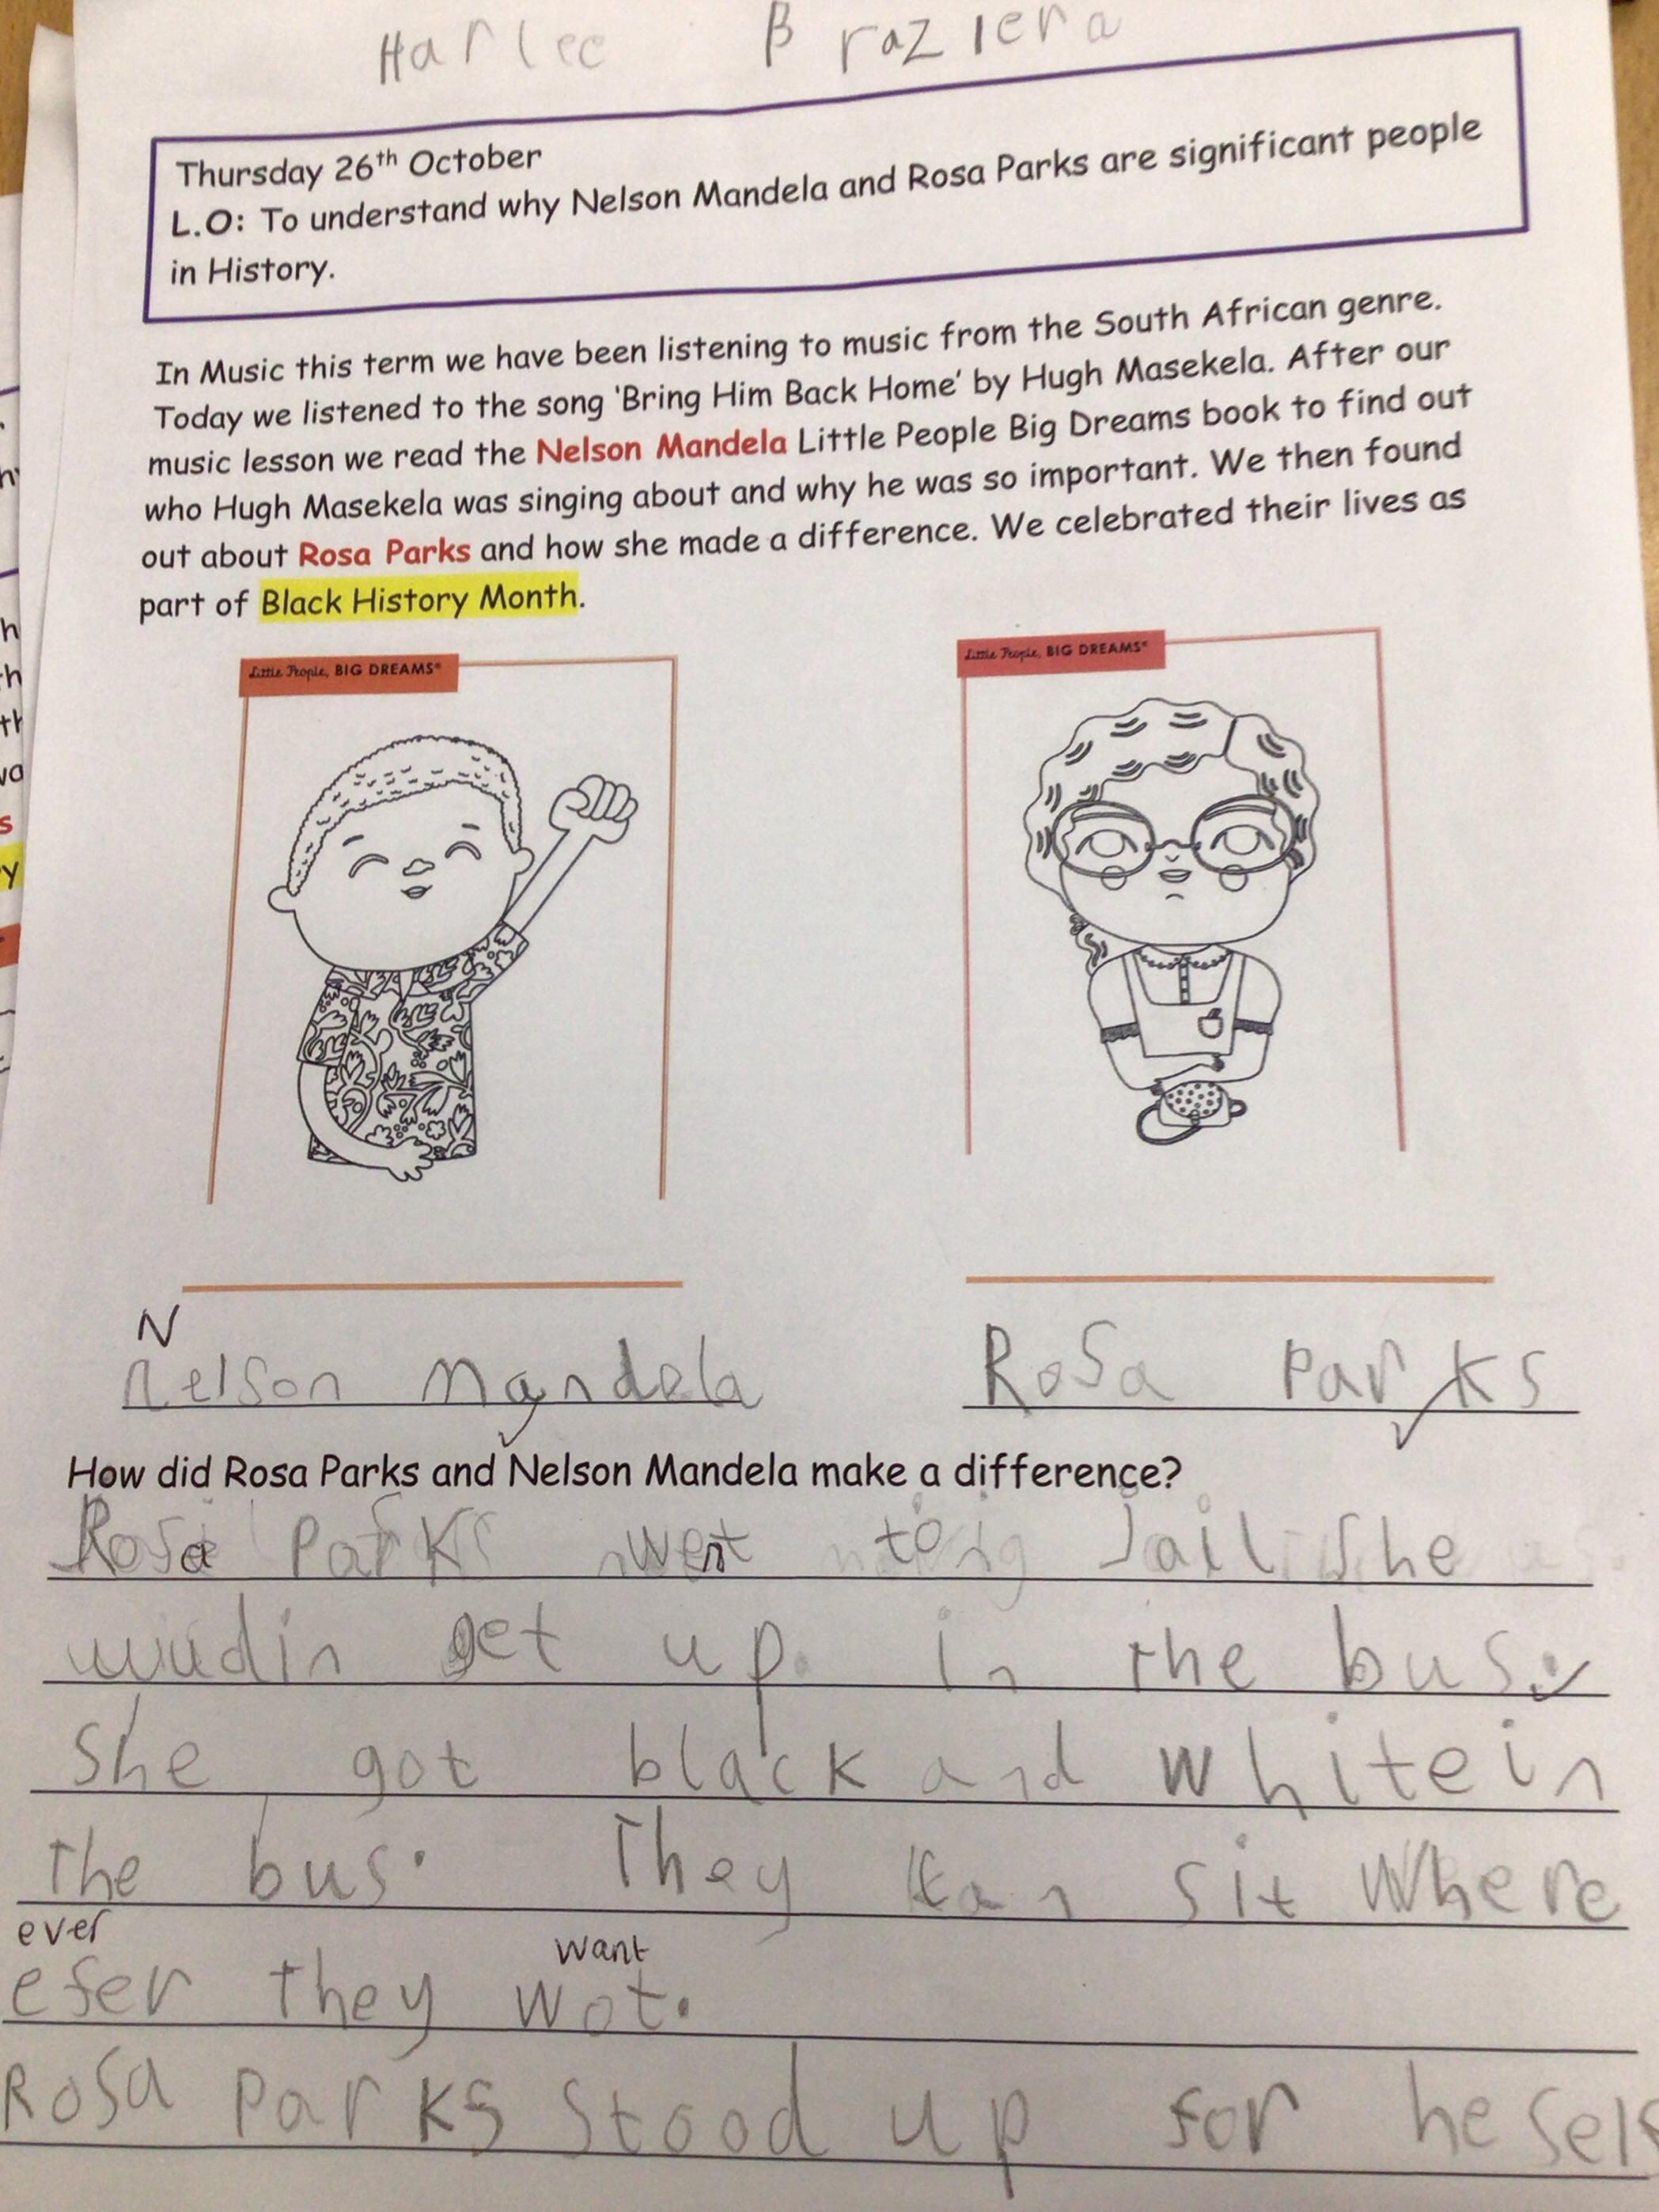 Harlee Braziera
Thursday 26th October
L.O: To understand why Nelson Mandela and Rosa Parks are significant people
in History.
In Music this term we have been listening to music from the South African genre.
Today we listened to the song 'Bring Him Back Home' by Hugh Masekela. After our
music lesson we read the Nelson Mandela Little People Big Dreams book to find out
who Hugh Masekela was singing about and why he was so important. We then found
out about Rosa Parks and how she made a difference. We celebrated their lives as
part of Black History Month.
Little People, BIG DREAMS®
Little People, BIG DREAMS®
N
nelson Mandela
RoSa parks
How did Rosa Parks and Nelson Mandela make a difference?
Rosa Parks went to Jail She
wudin get up in the bus.
She got black and white in
the bus. They kan sit Where
ever
efer they wot.
want
RoSa parks stood up for heself